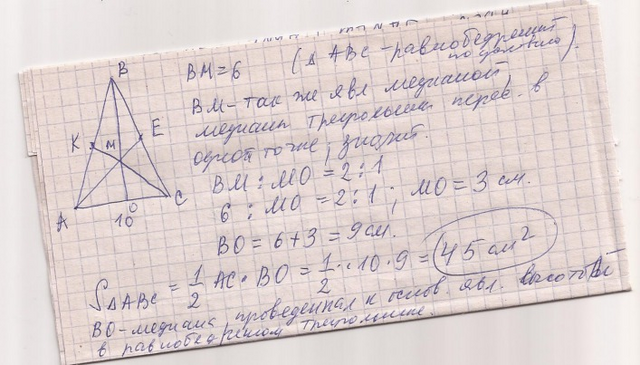 B
K
M
E
A
O
C
10
BM = 6 (Δ ABC - равнобедренный
по условию).
BM - так же явл медианой
медианы треугольника перес. в
одной точке, значит.
BM : MO = 2 : 1
6 : MO = 2 : 1 ; MO = 3 см.
BO = 6 + 3 = 9 см.
S Δ ABC = 1/2 AC · BO = 1/2 · 10 · 9 = 45 см²
BO - медиана проведенная к основ. явл. высотой
в равнобедренном треугольнике.